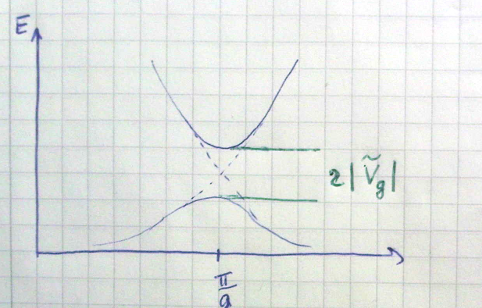 E
2|Ṽg|
π/a